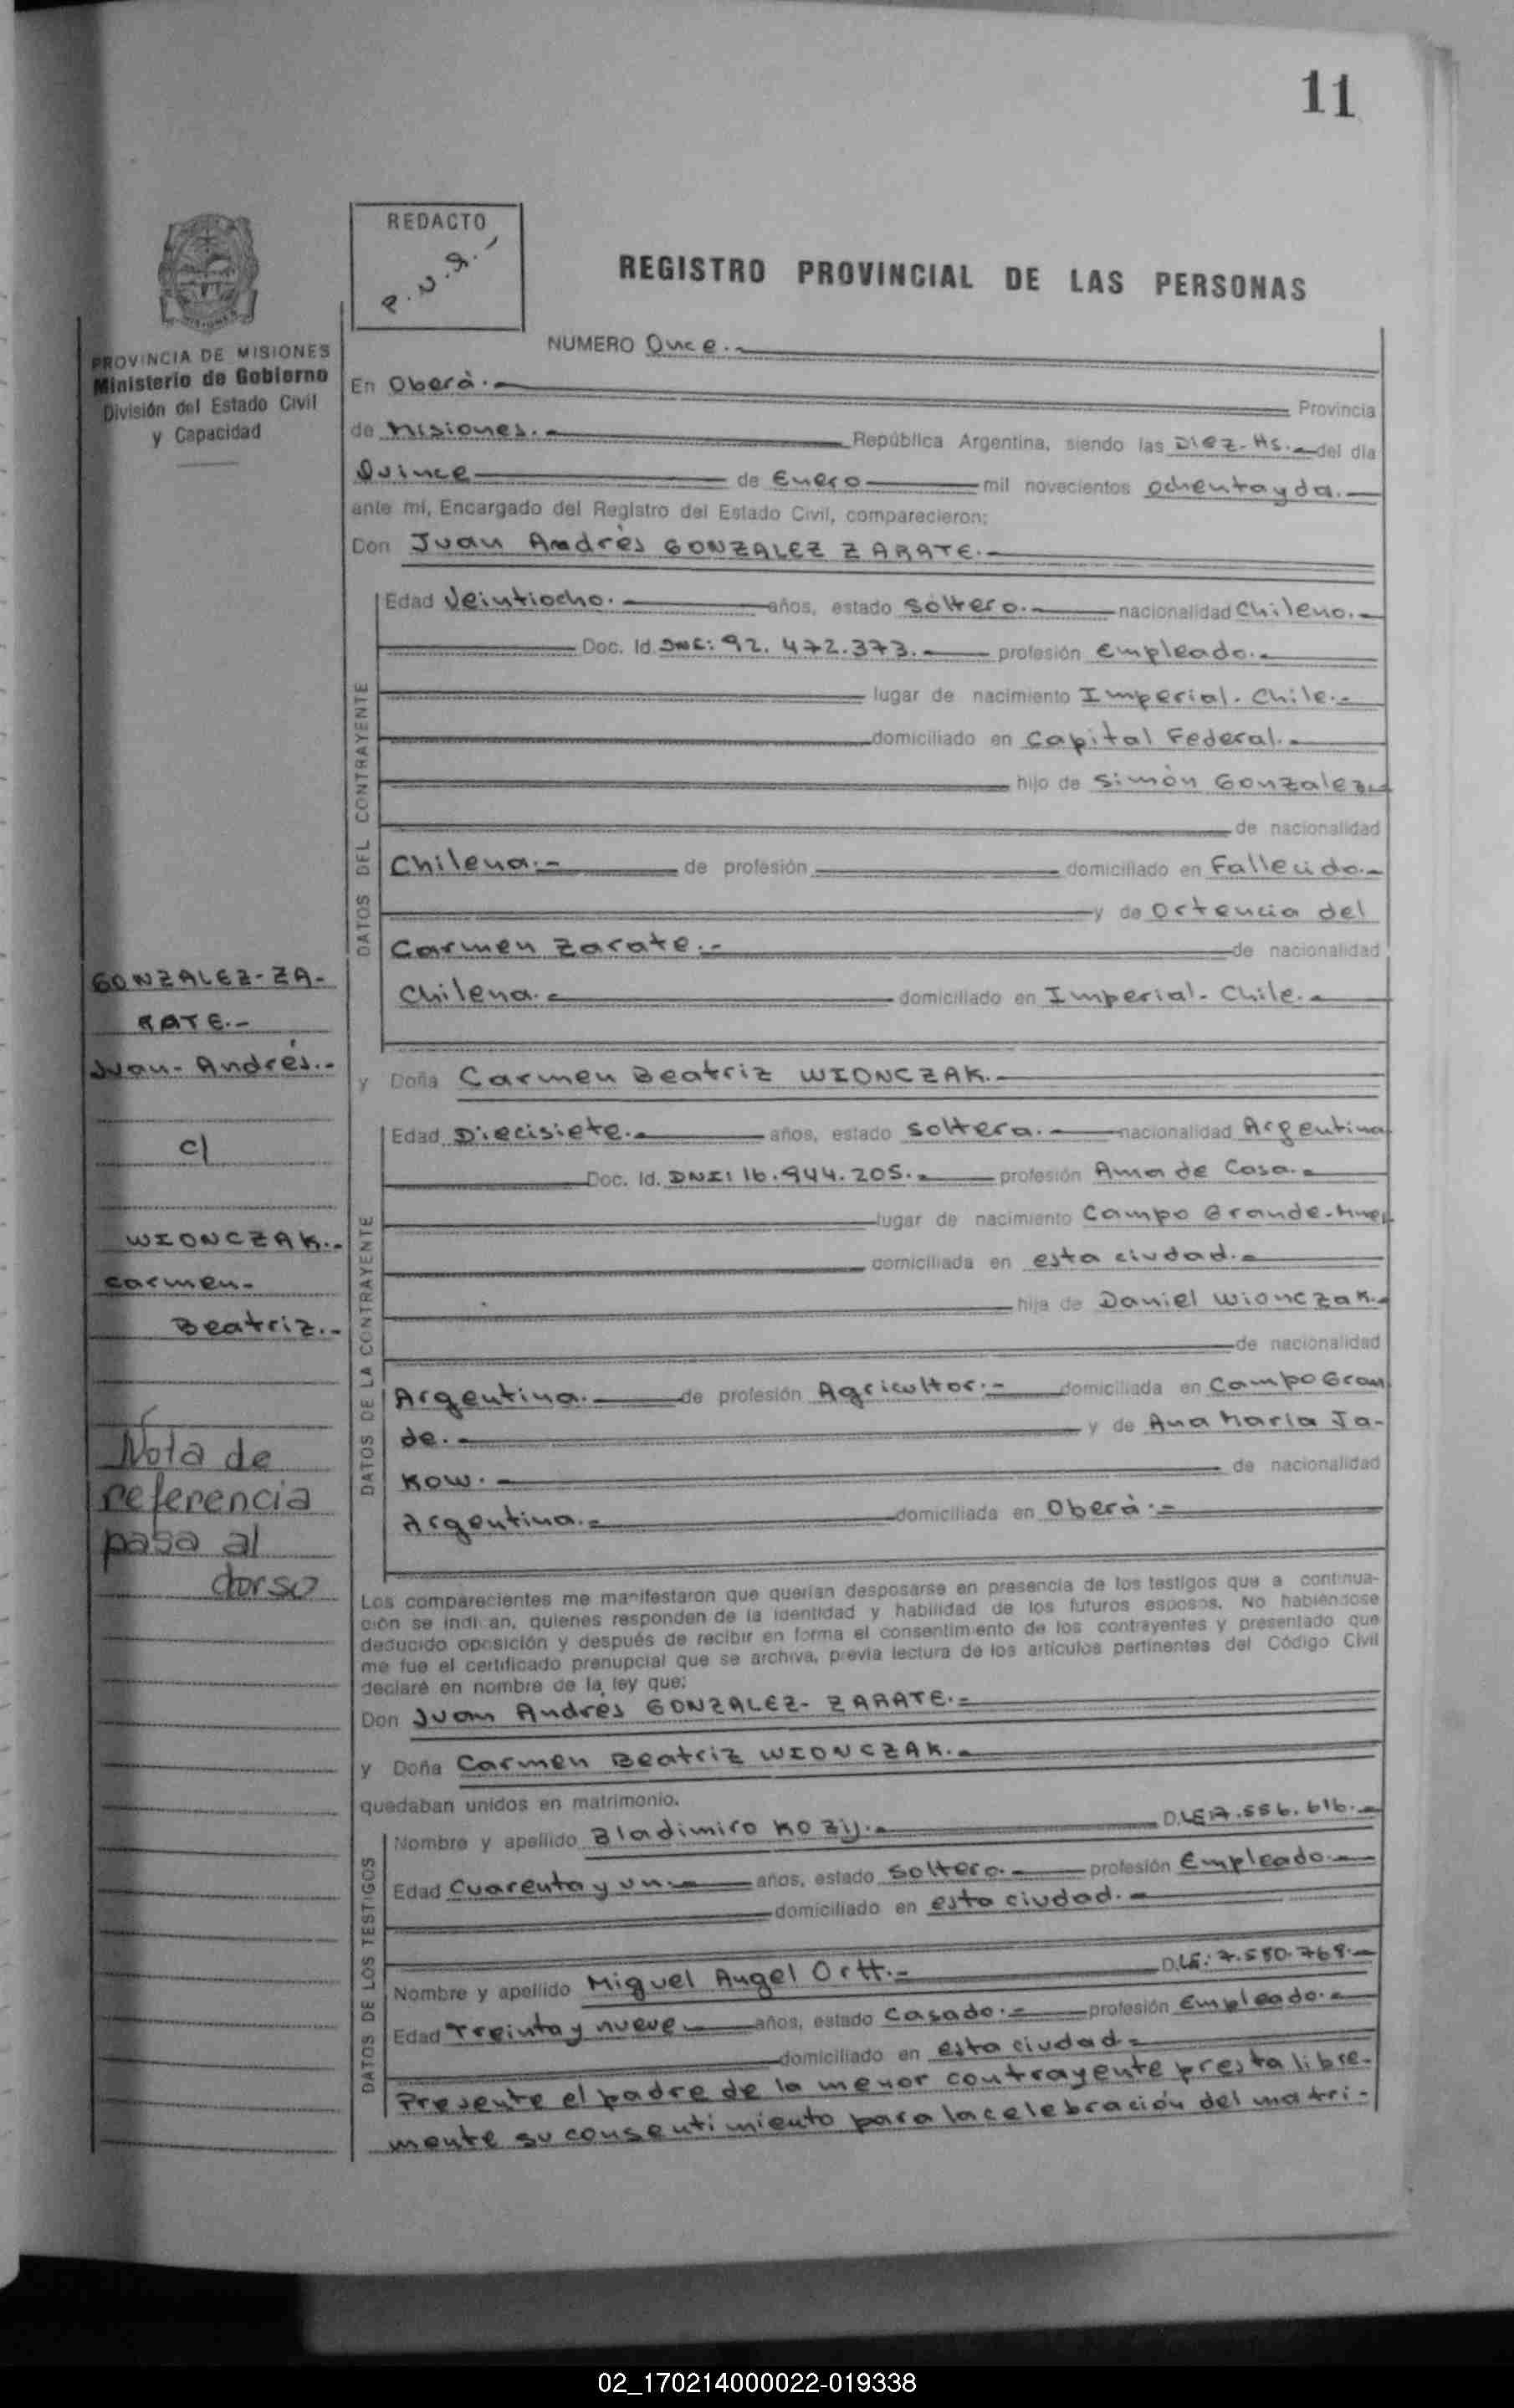 11
REDACTO
REGISTRO PROVINCIAL DE LAS PERSONAS
NUMERO Once.-
PROVINCIA DE MISIONES
Ministerio de Gobierno
División del Estado Civil
y Capacidad
En Oberà.- Provincia
de Misiones.- República Argentina, siendo las Diez-Hs.- del día
Quince de Enero mil novecientos ochenta y
ante mí, Encargado del Registro del Estado Civil, comparecieron:
Don Juan Andrès GONZALEZ ZARATE.-
DATOS DEL CONTRAYENTE
Edad Veintiocho.- años, estado soltero.- nacionalidad Chileno.-
Doc. Id. 92.472.373.- profesión Empleado.-
lugar de nacimiento Imperial-Chile.-
domiciliado en Capital Federal.-
hijo de Simòn Gonzalez.-
de nacionalidad
Chilena.- de profesión domiciliado en Fallecido.-
y de Ortencia del
Carmen Zarate.- de nacionalidad
Chilena.- domiciliado en Imperial-Chile.-
GONZALEZ-ZA-
RATE.-
Juan-Andrés.-
c/
WIONCZAK.-
Carmen-
Beatriz.-
Nota de
referencia
pasa al
dorso
y Doña Carmen Beatriz WIONCZAK.-
DATOS DE LA CONTRAYENTE
Edad Diecisiete.- años, estado soltera.- nacionalidad Argentina
Doc. Id. DNI: 16.944.205.- profesión Ama de Casa.-
lugar de nacimiento Campo Grande-
domiciliada en esta ciudad.-
hija de Daniel Wionczak.-
de nacionalidad
Argentina.- de profesión Agricultor.- domiciliada en Campo Gran
de.- y de Ana Maria Ja-
kow.- de nacionalidad
Argentina.- domiciliada en Oberà.-
Los comparecientes me manifestaron que querían desposarse en presencia de los testigos que a continua-
ción se indican, quienes responden de la identidad y habilidad de los futuros esposos. No habiéndose
deducido oposición y después de recibir en forma el consentimiento de los contrayentes y presentado que
me fue el certificado prenupcial que se archiva, previa lectura de los artículos pertinentes del Código Civil
declaré en nombre de la ley que:
Don Juan Andrès GONZALEZ-ZARATE.-
y Doña Carmen Beatriz WIONCZAK.-
quedaban unidos en matrimonio.
DATOS DE LOS TESTIGOS
Nombre y apellido Bladimiro Kozij.-
Edad Cuarenta y un.- años, estado soltero.- profesión Empleado.-
domiciliado en esta ciudad.-
Nombre y apellido Miguel Angel Ortt.- D.LE: 7.580.768.-
Edad Treinta y nueve.- años, estado casado.- profesión Empleado.-
domiciliado en esta ciudad.-
Presente el padre de la menor contrayente presta libre-
mente su consentimiento para la celebración del matri-
02_170214000022-019338